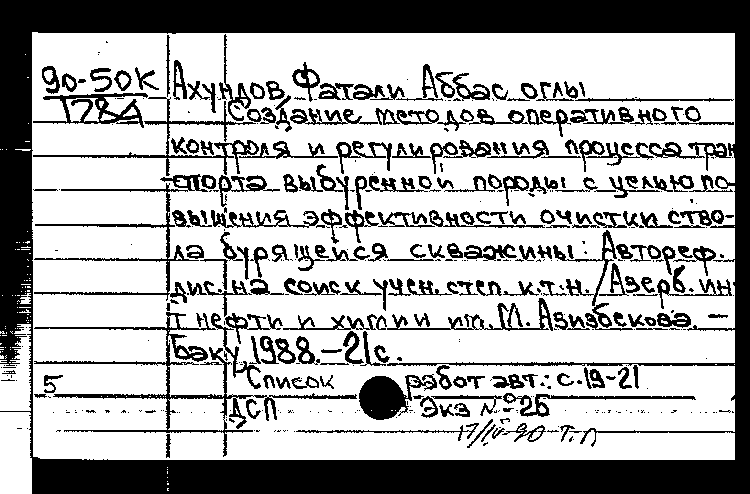 90-50К Ахундов, Фатали Аббас оглы
1784 Создание методов оперативного
контроля и регулирования процесса тран
спорта выбуренной породы с целью по-
вышения эффективности очистки ство-
ла бурящейся скважины: Автореф.
дис. на соиск учен. степ. к.т.н. /Азерб. ин-
т нефти и химии им. М. Азизбекова. —
Баку, 1988.-21с.
5 Список работ авт.: с.19-21
ДСП Экз № 26
17/IV-90 Т.П